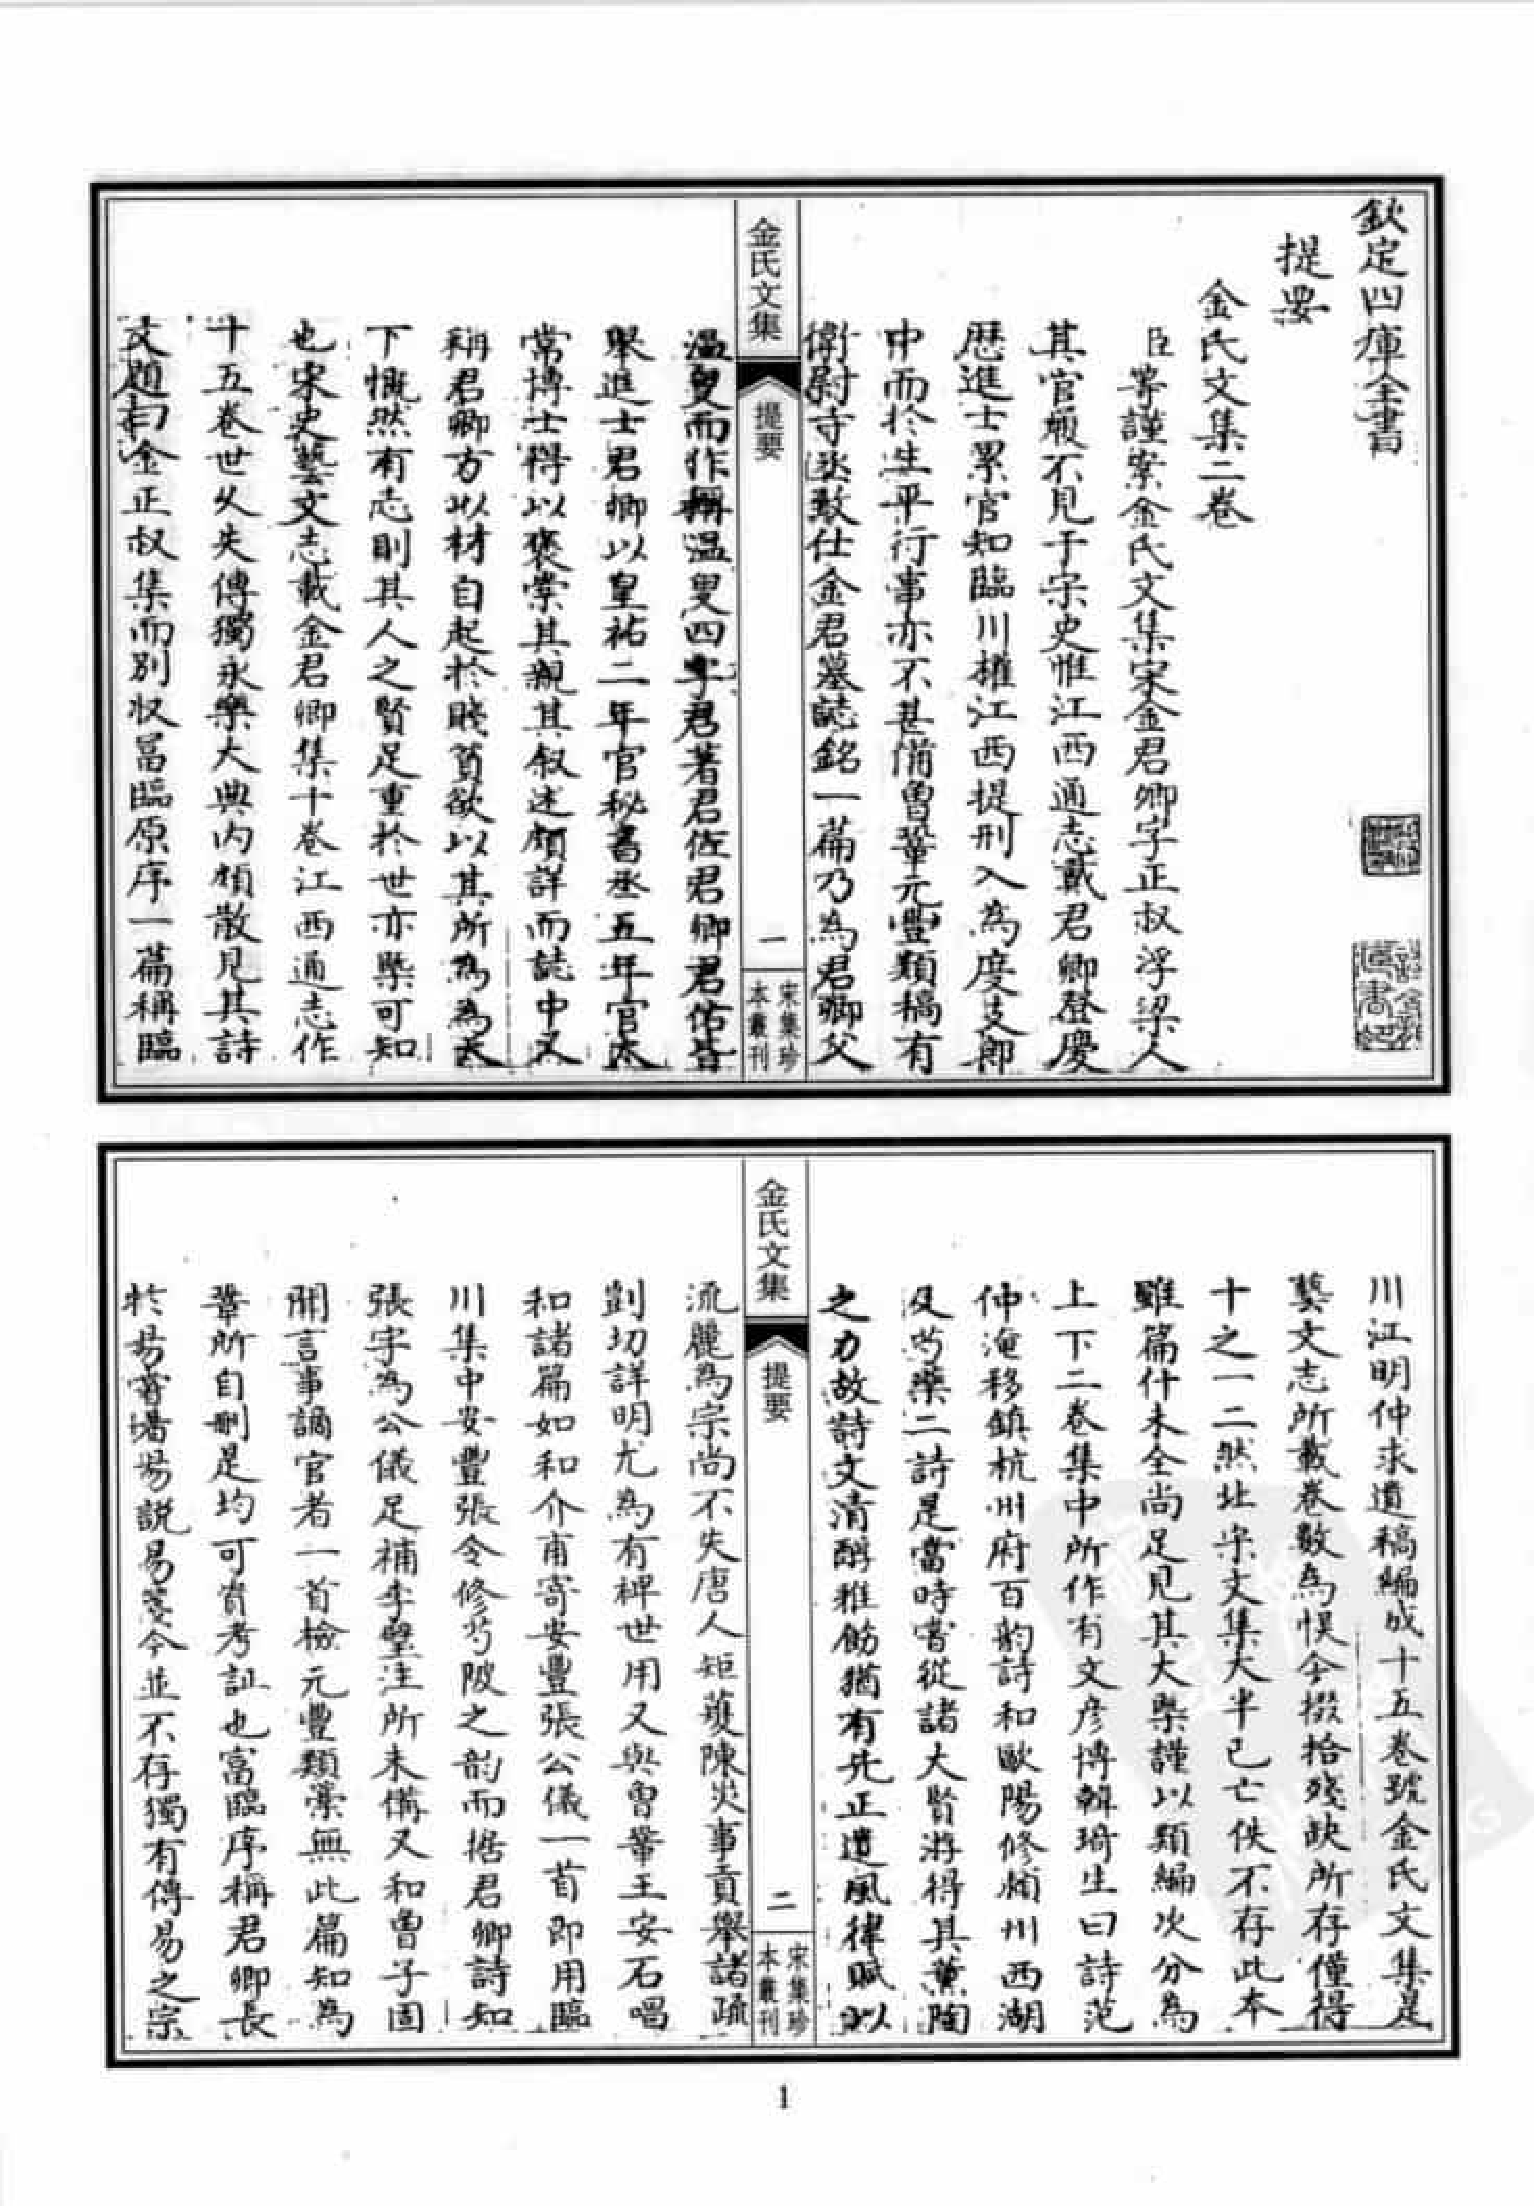 欽定四庫全書
提要
金氏文集二卷
臣等謹案金氏文集宋金君卿字正叔浮梁人
其官履不見于宋史惟江西通志載君卿登慶
歴進士累官知臨川權江西提刑入為度支郎
中而於生平行事亦不甚備曾鞏元豐類稿有
衛尉寺丞致仕金君墓誌銘一篇乃為君卿父
温叟而作稱温叟四子君著君佐君卿君佑皆
舉進士君卿以皇祐二年官秘書丞五年官太
常博士得以褒崇其親其叙述頗詳而誌中又
稱君卿方以材自起於賤貧欲以其所為為天
下慨然有志則其人之賢足重於世亦槩可知
也宋史藝文志載金君卿集十卷江西通志作
十五卷世乆失傳獨永樂大典内頗散見其詩
文題曰金正叔集而别收富臨原序一篇稱臨
金氏文集
提要
一
宋集珍
本叢刊
川江明仲求遺稿編成十五卷號金氏文集是
藝文志所載卷數為悞今掇拾殘缺所存僅得
十之一二然北宋文集大半已亡佚不存此本
雖篇什未全尚足見其大槩謹以類編次分為
上下二卷集中所作有文彦博韓琦生日詩范
仲淹移鎮杭州府百韵詩和歐陽修潁州西湖
及芍藥二詩是當時嘗從諸大賢游得其薰陶
之力故詩文清醇雅飭猶有先正遺風律賦以
流麗為宗尚不失唐人矩蒦陳災事貢舉諸疏
剴切詳明尤為有裨世用又與曾鞏王安石唱
和諸篇如和介甫寄安豐張公儀一首即用臨
川集中安豐張令修芍陂之韵而据君卿詩知
張字為公儀足補李壁注所未備又和曾子固
開言事謫官者一首檢元豐類藁無此篇知為
鞏所自刪是均可資考訂也富臨序稱君卿長
於易嘗著易説易箋今並不存獨有傳易之宗
金氏文集
提要
二
宋集珍
本叢刊
1